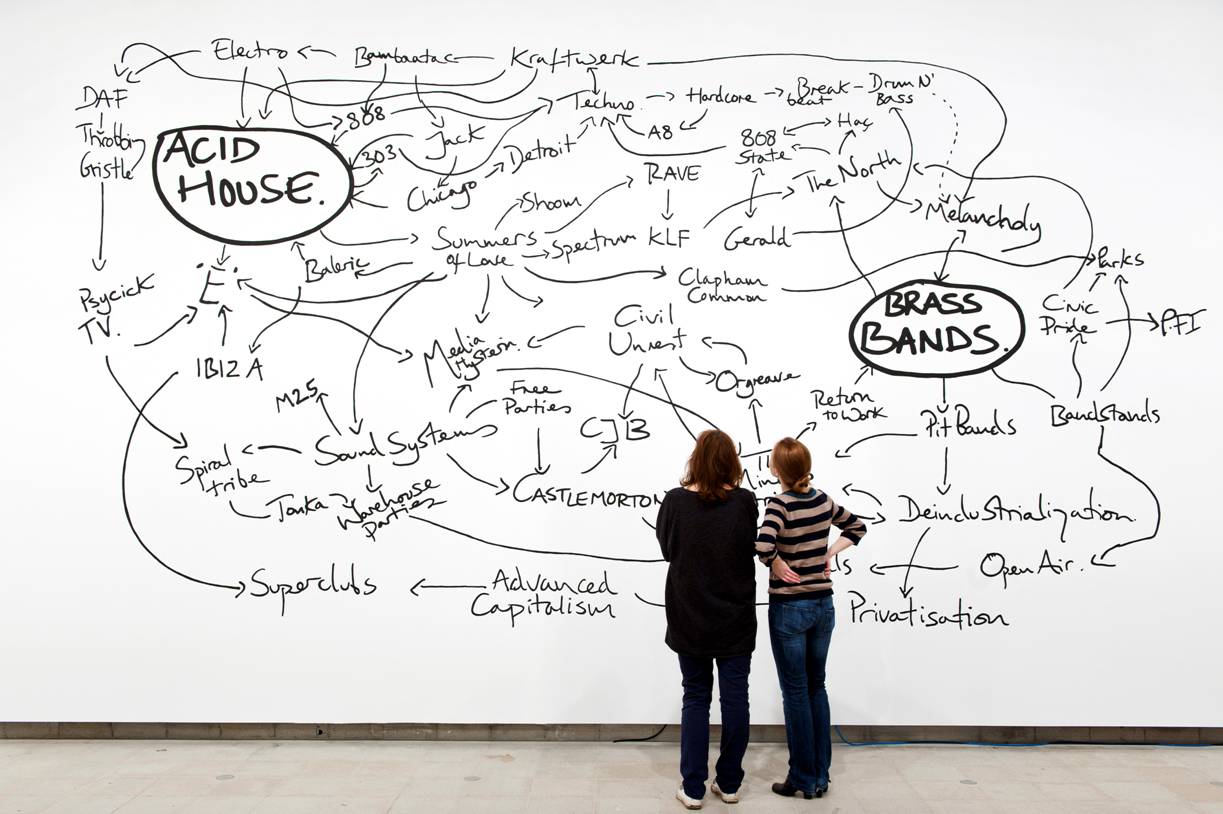 Electro
Bambaata
Kraftwerk
DAF
808
Techno
Hardcore
Break-
beat
Drum N'
Bass
Throbbin
Gristle
ACID
HOUSE.
303
Jack
Detroit
A8
808
State
Haç
Chicago
Shoom
RAVE
The North
Summers
of Love
Spectrum
KLF
Gerald
Melancholy
Baleric
Clapham
Common
Parks
Psycick
TV.
"E"
BRASS
BANDS.
Civic
Pride
PFI
IBIZA
Media
Hysteria.
Civil
Unrest
Orgreave
M25
Free
Parties
Return
to Work
CJB
Pit Bands
Bandstands
Spiral
tribe
Sound Systems
CASTLEMORTON
Tonka
Warehouse
Parties
Deindustrialization
Superclubs
Advanced
Capitalism
Open Air.
Privatisation